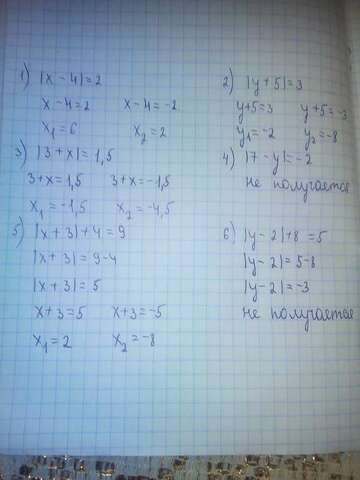 1) |x - 4| = 2
x - 4 = 2    x - 4 = -2
x₁ = 6    x₂ = 2
2) |y + 5| = 3
y + 5 = 3    y + 5 = -3
y₁ = -2    y₂ = -8
3) |3 + x| = 1,5
3 + x = 1,5    3 + x = -1,5
x₁ = -1,5    x₂ = -4,5
4) |7 - y| = -2
не получается
5) |x + 3| + 4 = 9
|x + 3| = 9 - 4
|x + 3| = 5
x + 3 = 5    x + 3 = -5
x₁ = 2    x₂ = -8
6) |y - 2| + 8 = 5
|y - 2| = 5 - 8
|y - 2| = -3
не получается